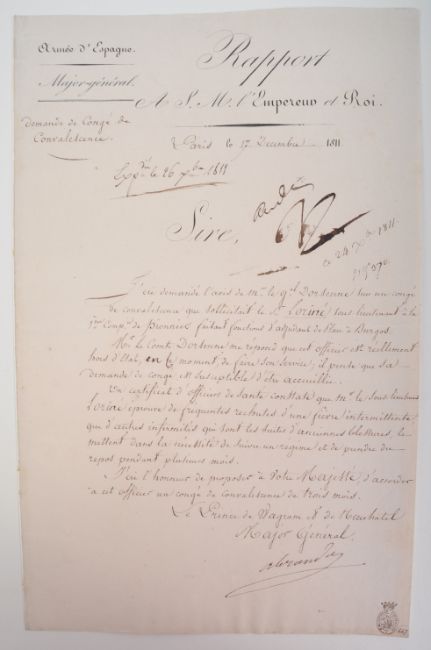 Armée d'Espagne.
Major-général.
Demande de Congé de
Convalescence.
Rapport
A S. M. l'Empereur et Roi.
Paris le 17 Decembre 1811
Exp.én le 26 Xbre 1811
Sire,
ce 24 Xbre 1811.
J'ai demandé l'avis de Mr. le Gal. Dorsenne sur un congé
de convalescence que sollicitait le Sr. Loriné sous lieutenant à la
Compie. de Pionniers faisant fonctions d'adjudant de Place à Burgos.
Mr. le Comte Dorsenne me répond que cet officier est réellement
hors d'état, en ce moment, de faire son service; il pense que sa
demande de congé est susceptible d'être accueillie.
Un certificat d'officiers de Santé constate que Mr. le Sous lieutenant
Loriné éprouve de fréquentes rechutes d'une fièvre intermittente,
que d'autres infirmités qui sont les suites d'anciennes blessures, le
mettent dans la nécessité de suivre un régime et de prendre du
repos pendant plusieurs mois.
J'ai l'honneur de proposer à Votre Majesté d'accorder
à cet officier un congé de convalescence de trois mois.
Le Prince de Wagram & de Neuchatel
Major Général.
Alexandre